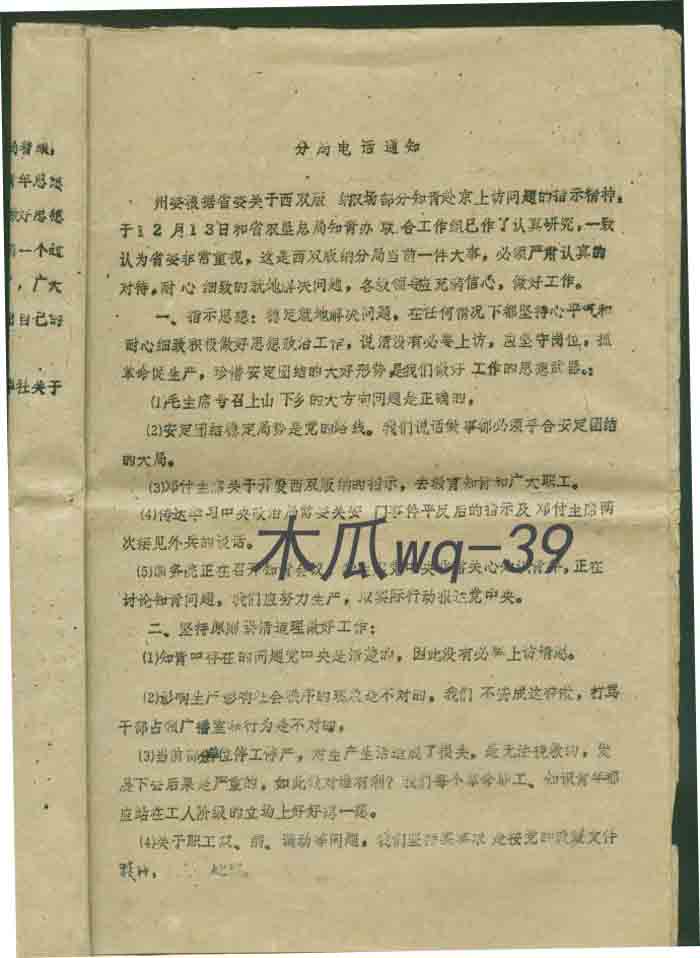 分局电话通知
州委根据省委关于西双版纳农场部分知青赴京上访问题的指示精神,
于12月13日和省农垦总局知青办联合工作组已作了认真研究,一致
认为省委非常重视,这是西双版纳分局当前一件大事,必须严肃认真的
对待,耐心细致的就地解决问题,各级领导应充满信心,做好工作。
一、指示思想:稳定就地解决问题,在任何情况下都坚持心平气和
耐心细致积极做好思想政治工作,说清没有必要上访,应坚守岗位,抓
革命促生产,珍惜安定团结的大好形势是我们做好工作的思想武器。:
(1)毛主席号召上山下乡的大方向问题是正确的,
(2)安定团结稳定局势是党的路线。我们说话做事都必须乎合安定团结
的大局。
(3)邓付主席关于开发西双版纳的指示,去教育知青和广大职工。
(4)传达学习中央政治局常委关 门事件平反后的指示及邓付主席两
次接见外兵的谈话。
(5)国务院正在召开知青会议, 党中央 关心知识青年,正在
讨论知青问题,我们应努力生产,以实际行动报达党中央。
二、坚持原则 讲清道理做好工作:
(1)知青中存在的问题党中央是清楚的,因此没有必要上访请愿。
(2)影响生产影响社会秩序的现象是不对的,我们不赞成这样做,打骂
干部占领广播室 行为是不对的,
(3)当前部分单位停工停产,对生产生活造成了损失,是无法挽救的,发
展下去后果是严重的,如此 对谁有利?我们每个革命职工、知识青年都
应站在工人阶级的立场上好好想一想。
(4)关于职工 调动等问题,我们坚持 按党的政策文件
精神,
年思想
做好思想
一个
,广大
自己的
社关于
木瓜wq-39